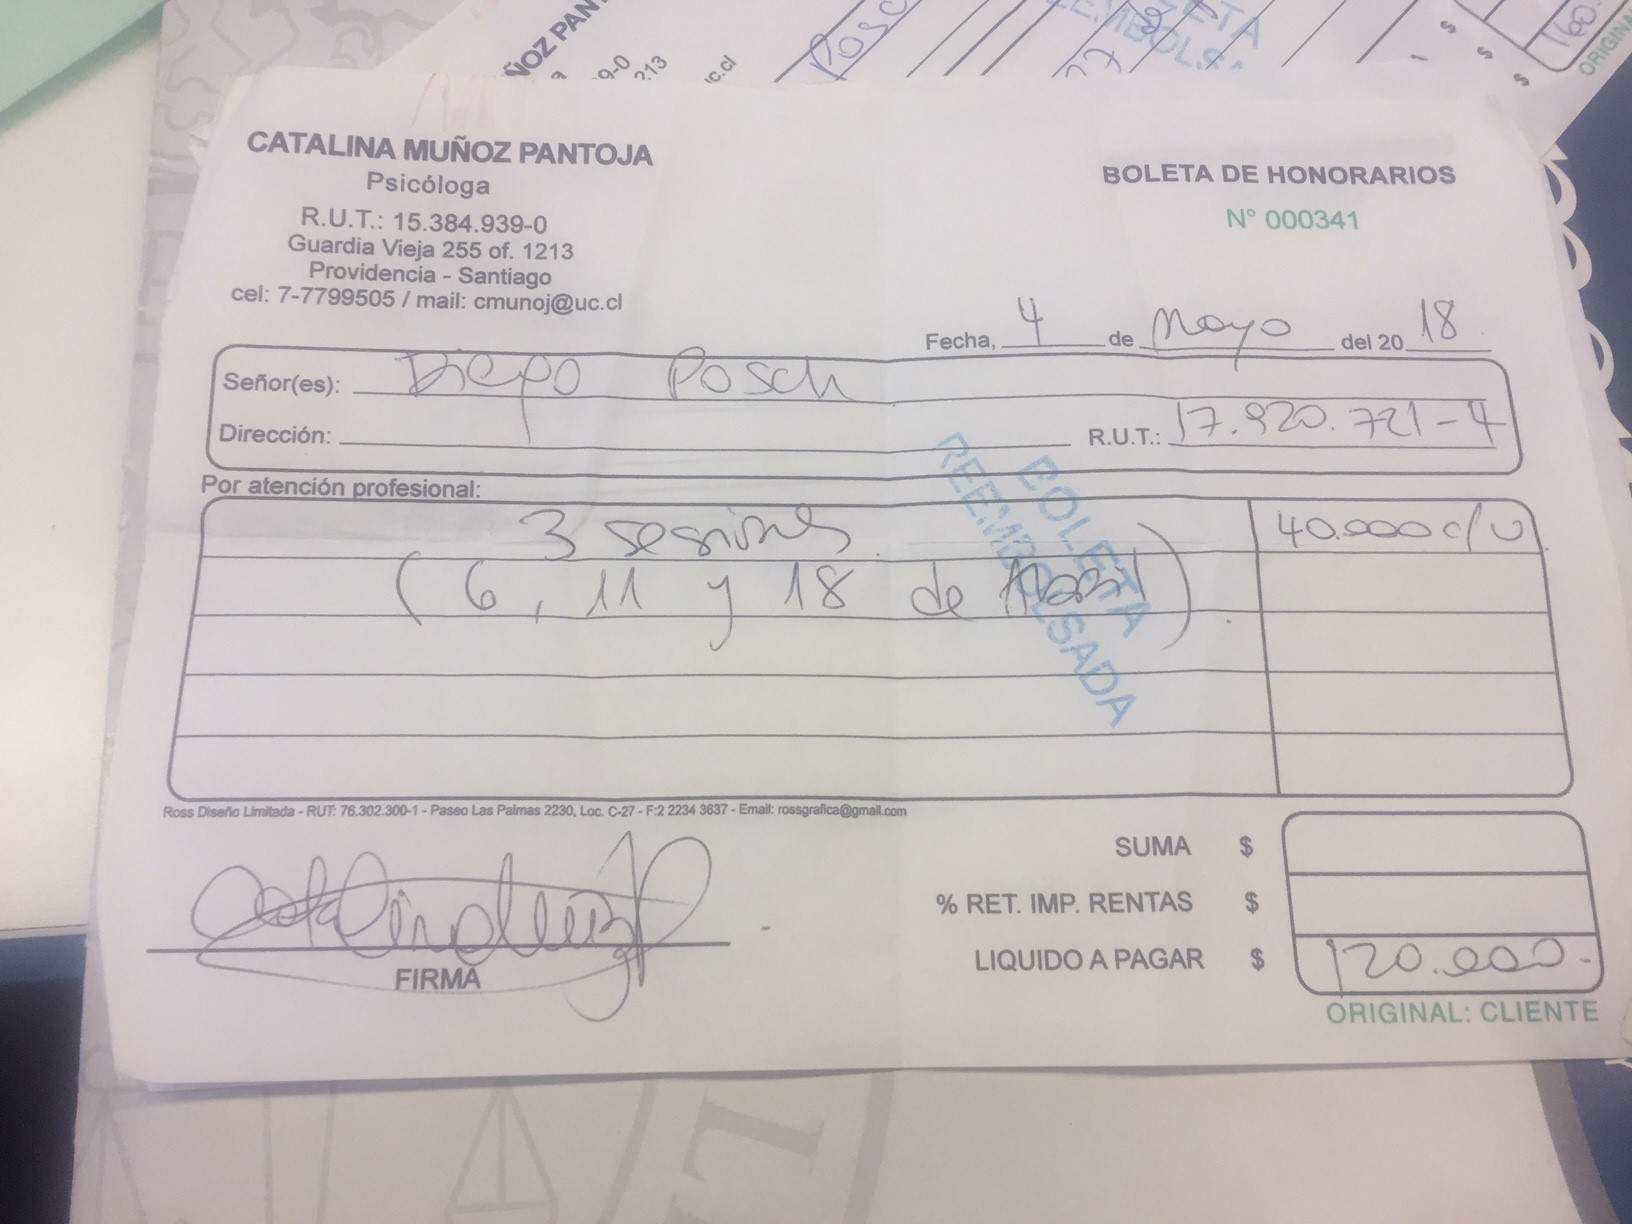 ÑOZ PAN
9-0
213
uc.cl
Posc
CATALINA MUÑOZ PANTOJA
Psicóloga
R.U.T.: 15.384.939-0
Guardia Vieja 255 of. 1213
Providencia - Santiago
cel: 7-7799505 / mail: cmunoj@uc.cl
BOLETA DE HONORARIOS
N° 000341
Fecha, 4 de Mayo del 20 18
Señor(es): Diego Posch
Dirección:
R.U.T.: 17.920.721-4
Por atención profesional:
3 sesiones 40.000 c/u
(6, 11 y 18 de Abril)
BOLETA
REEMBOLSADA
Ross Diseño Limitada - RUT: 76.302.300-1 - Paseo Las Palmas 2230, Loc. C-27 - F:2 2234 3637 - Email: rossgrafica@gmail.com
SUMA $
% RET. IMP. RENTAS $
LIQUIDO A PAGAR $ 120.000.-
FIRMA
ORIGINAL: CLIENTE